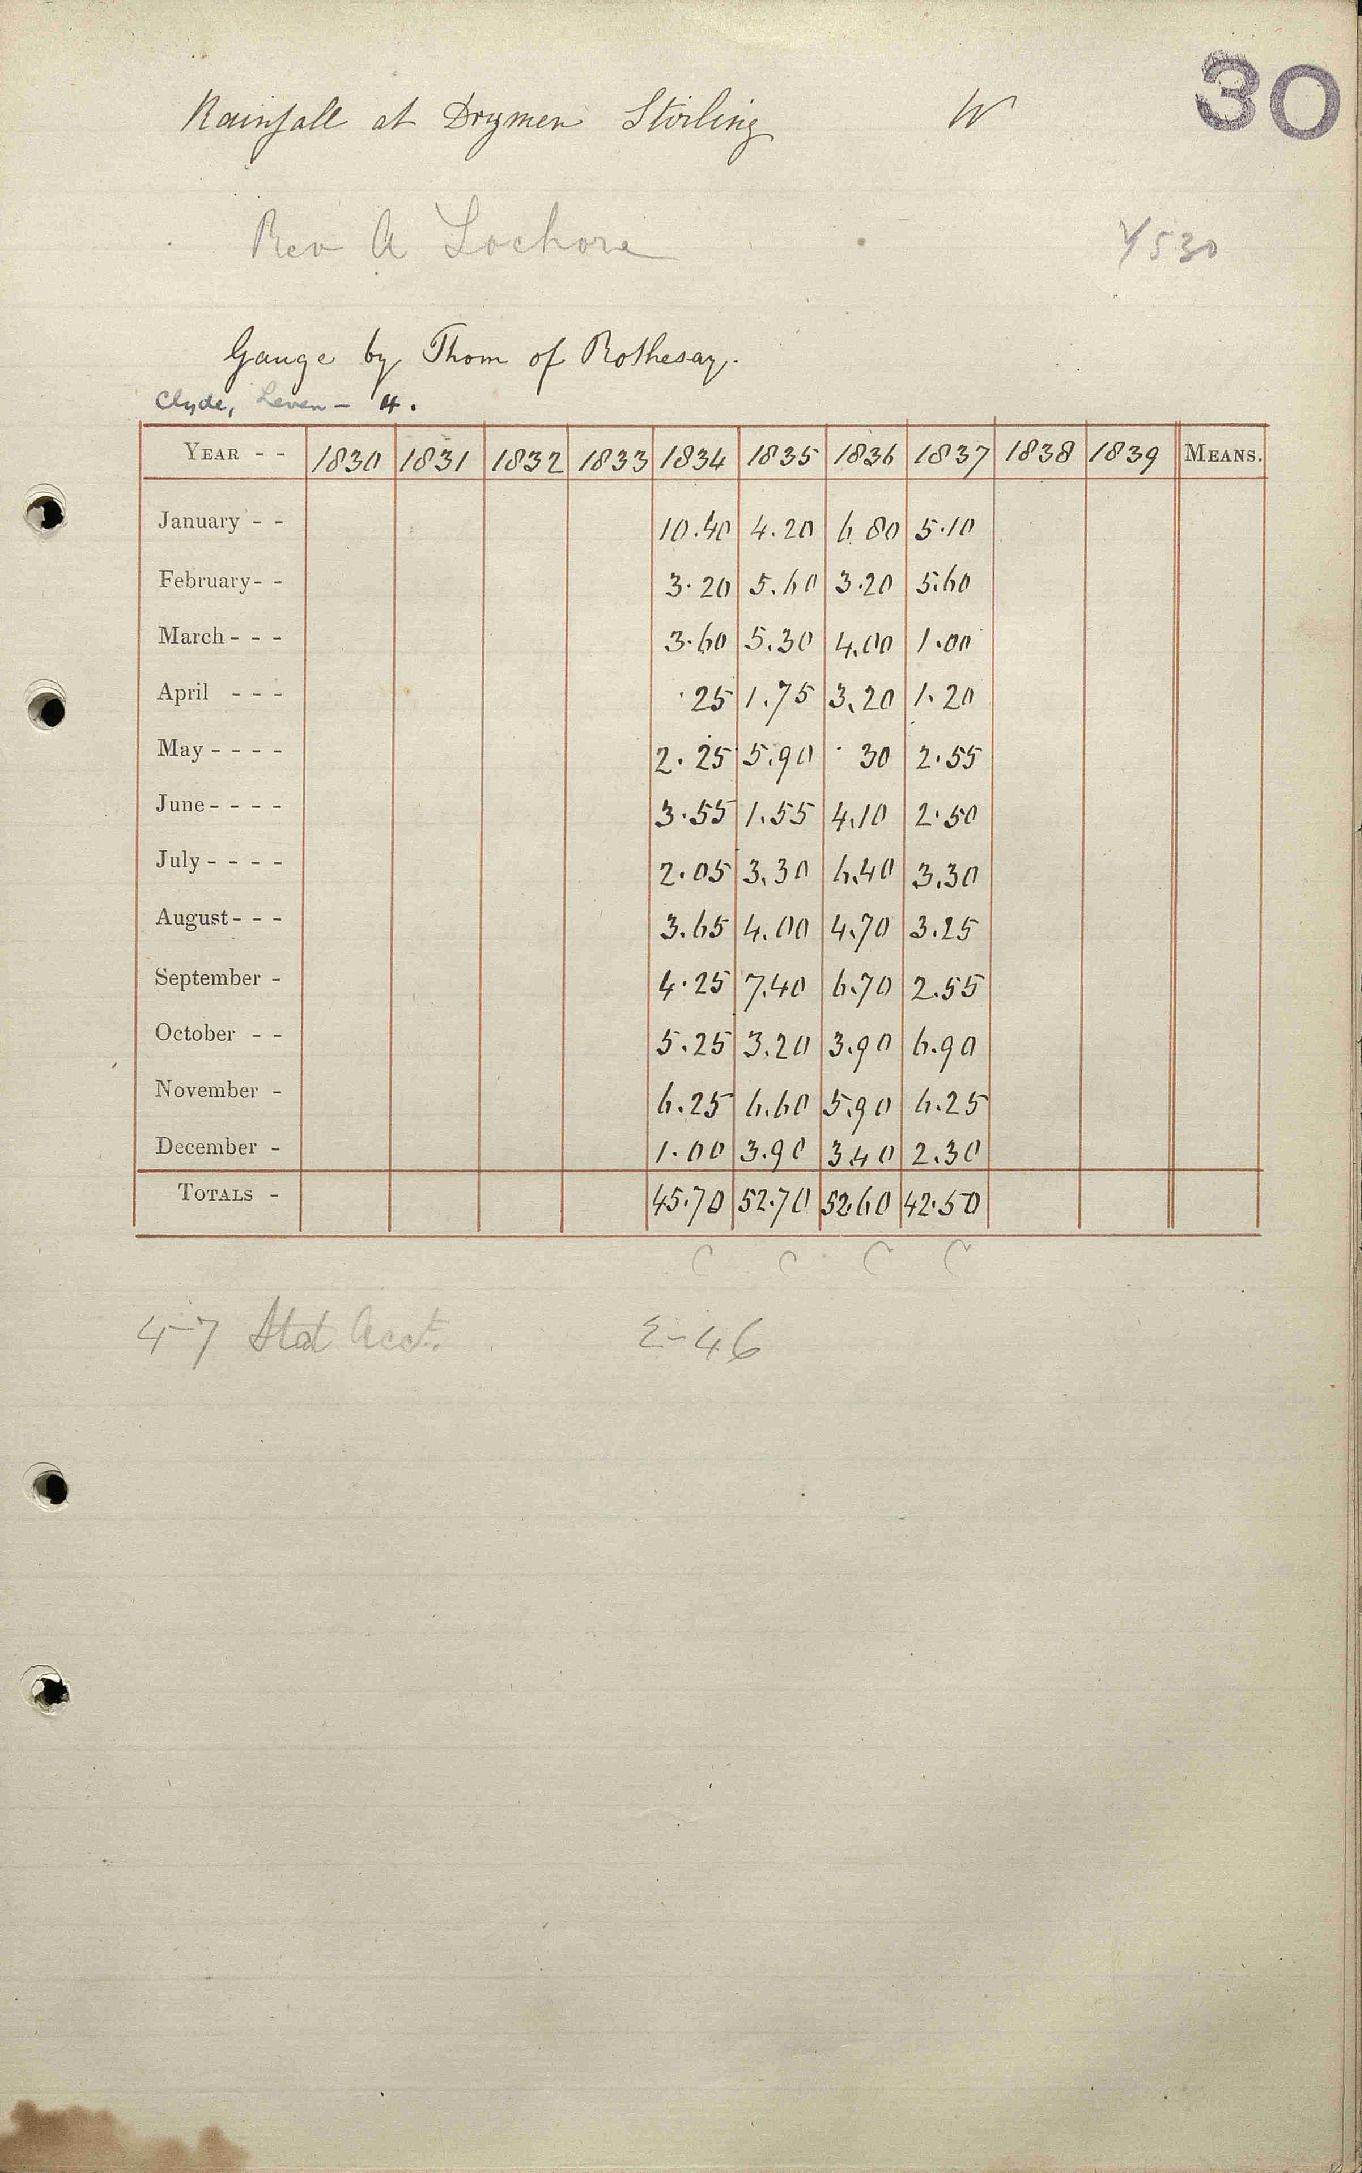 30
Rainfall at Drymen Stirling W
Rev A Lochore
Gauge by Thom of Rothesay.
Clyde, Leven - 4.
YEAR - - 1830 1831 1832 1833 1834 1835 1836 1837 1838 1839 MEANS.
January - - 10.40 4.20 6 80 5.10
February - - 3.20 5.60 3.20 5.60
March - - - 3.60 5.30 4.00 1.00
April - - - .25 1.75 3.20 1.20
May - - - - 2.25 5.90 .30 2.55
June - - - - 3.55 1.55 4.10 2.50
July - - - - 2.05 3.30 6.40 3.30
August - - - 3.65 4.00 4.70 3.25
September - 4.25 7.40 6.70 2.55
October - - 5.25 3.20 3.90 6.90
November - 6.25 6.60 5.90 6.25
December - 1.00 3.90 3 40 2.30
TOTALS - 45.70 52.70 52.60 42.50
C C C C
4-7 Stat Acct. Σ-46